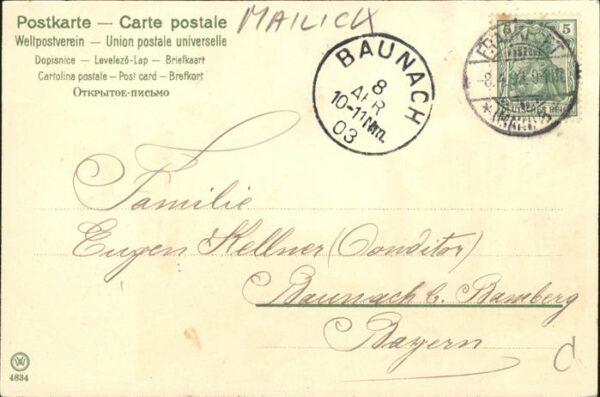 Postkarte — Carte postale
Weltpostverein — Union postale universelle
Dopisnice — Levelező-Lap — Briefkaart
Cartolina postale — Post card — Brefkort
Открытое-письмо
MAILICK
BAUNACH
8
APR
10-11 Nm.
03
5 5
-8.4.03. 9-10
Familie
Eugen Kellner (Conditor)
Baunach b. Bamberg
Bayern
C
4834